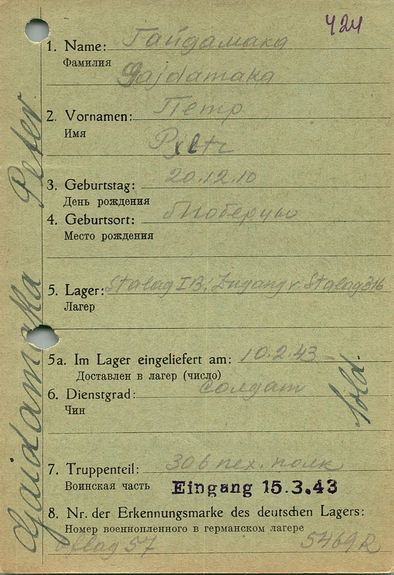 424
1. Name: Гайдамака
Фамилия
Gajdamaka
2. Vornamen: Петр
Имя
Petr
3. Geburtstag: 20.12.10
День рождения
4. Geburtsort:
Место рождения
5. Lager: Stalag IB; Zugang v. Stalag 316
Лагер
5a. Im Lager eingeliefert am: 10.2.43
Доставлен в лагер (число)
6. Dienstgrad: солдат
Чин
Sold.
7. Truppenteil: 306 пех. полк
Воинская часть Eingang 15.3.43
8. Nr. der Erkennungsmarke des deutschen Lagers:
Номер военнопленного в германском лагере
Oflag 57 5469 R
Gaidamaka Peter